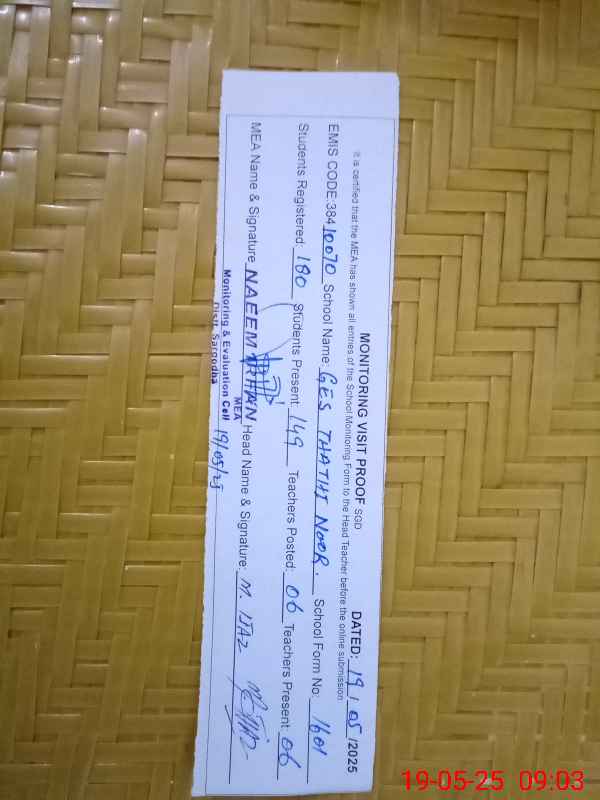 MONITORING VISIT PROOF SGD DATED: 19 / 05 /2025
It is certified that the MEA has shown all entries of the School Monitoring Form to the Head Teacher before the online submission
EMIS CODE:38410070 School Name: GES THATHI NOOR. School Form No: 1601
Students Registered: 180 Students Present: 149 Teachers Posted: 06 Teachers Present: 06
MEA Name & Signature NAEEM Head Name & Signature: M. IJAZ
MEA
Monitoring & Evaluation Cell 19/05/25
Distt. Sargodha
19-05-25 09:03